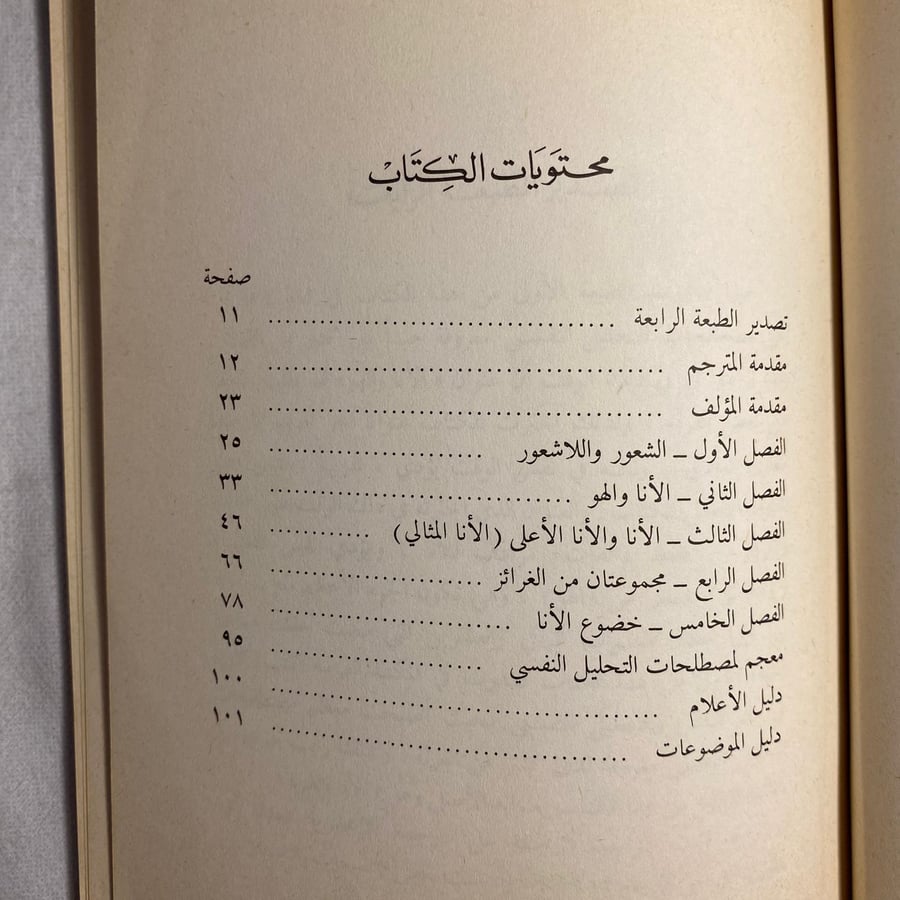 محتويات الكِتَابْ
صفحة
تصدير الطبعة الرابعة ........ ١١
مقدمة المترجم ........ ١٢
مقدمة المؤلف ........ ٢٣
الفصل الأول ــ الشعور واللاشعور ........ ٢٥
الفصل الثاني ــ الأنا والهو ........ ٣٣
الفصل الثالث ــ الأنا والأنا الأعلى (الأنا المثالي) ........ ٤٦
الفصل الرابع ــ مجموعتان من الغرائز ........ ٦٦
الفصل الخامس ــ خضوع الأنا ........ ٧٨
معجم لمصطلحات التحليل النفسي ........ ٩٥
دليل الأعلام ........ ١٠٠
دليل الموضوعات ........ ١٠١